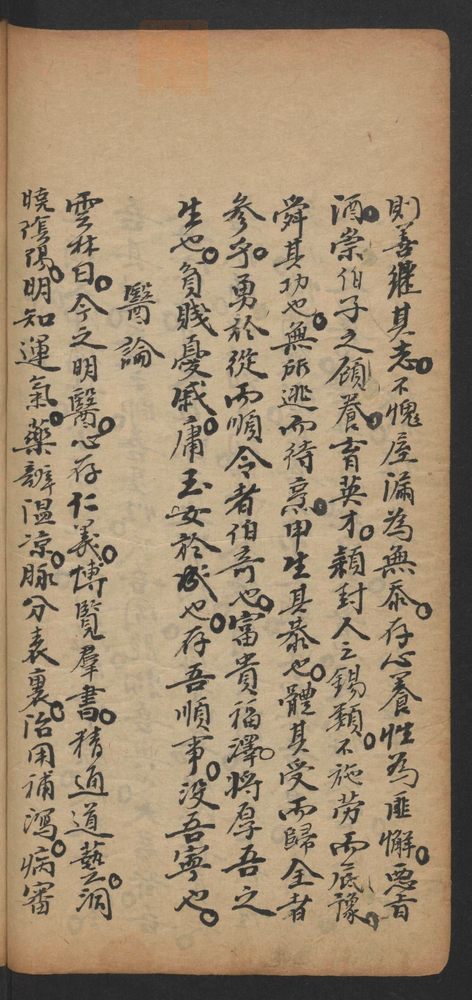 則善繼其志。不愧屋漏為無忝。存心養性為匪懈。惡旨
酒。崇伯子之顧養。育英才。頴封人之錫類。不施勞而底豫。
舜其功也。無所逃而待烹。申生其恭也。體其受而歸全者
參乎。勇於從而順令者伯奇也。富貴福澤。將厚吾之
生也。貧賤憂戚。庸玉女於成也。存吾順事。沒吾寧也。
醫論
雲林曰。今之明醫。心存仁義。博覽羣書。精通道藝。洞
曉陰陽。明知運氣。藥辧温凉。脉分表裏。治用補瀉。病審